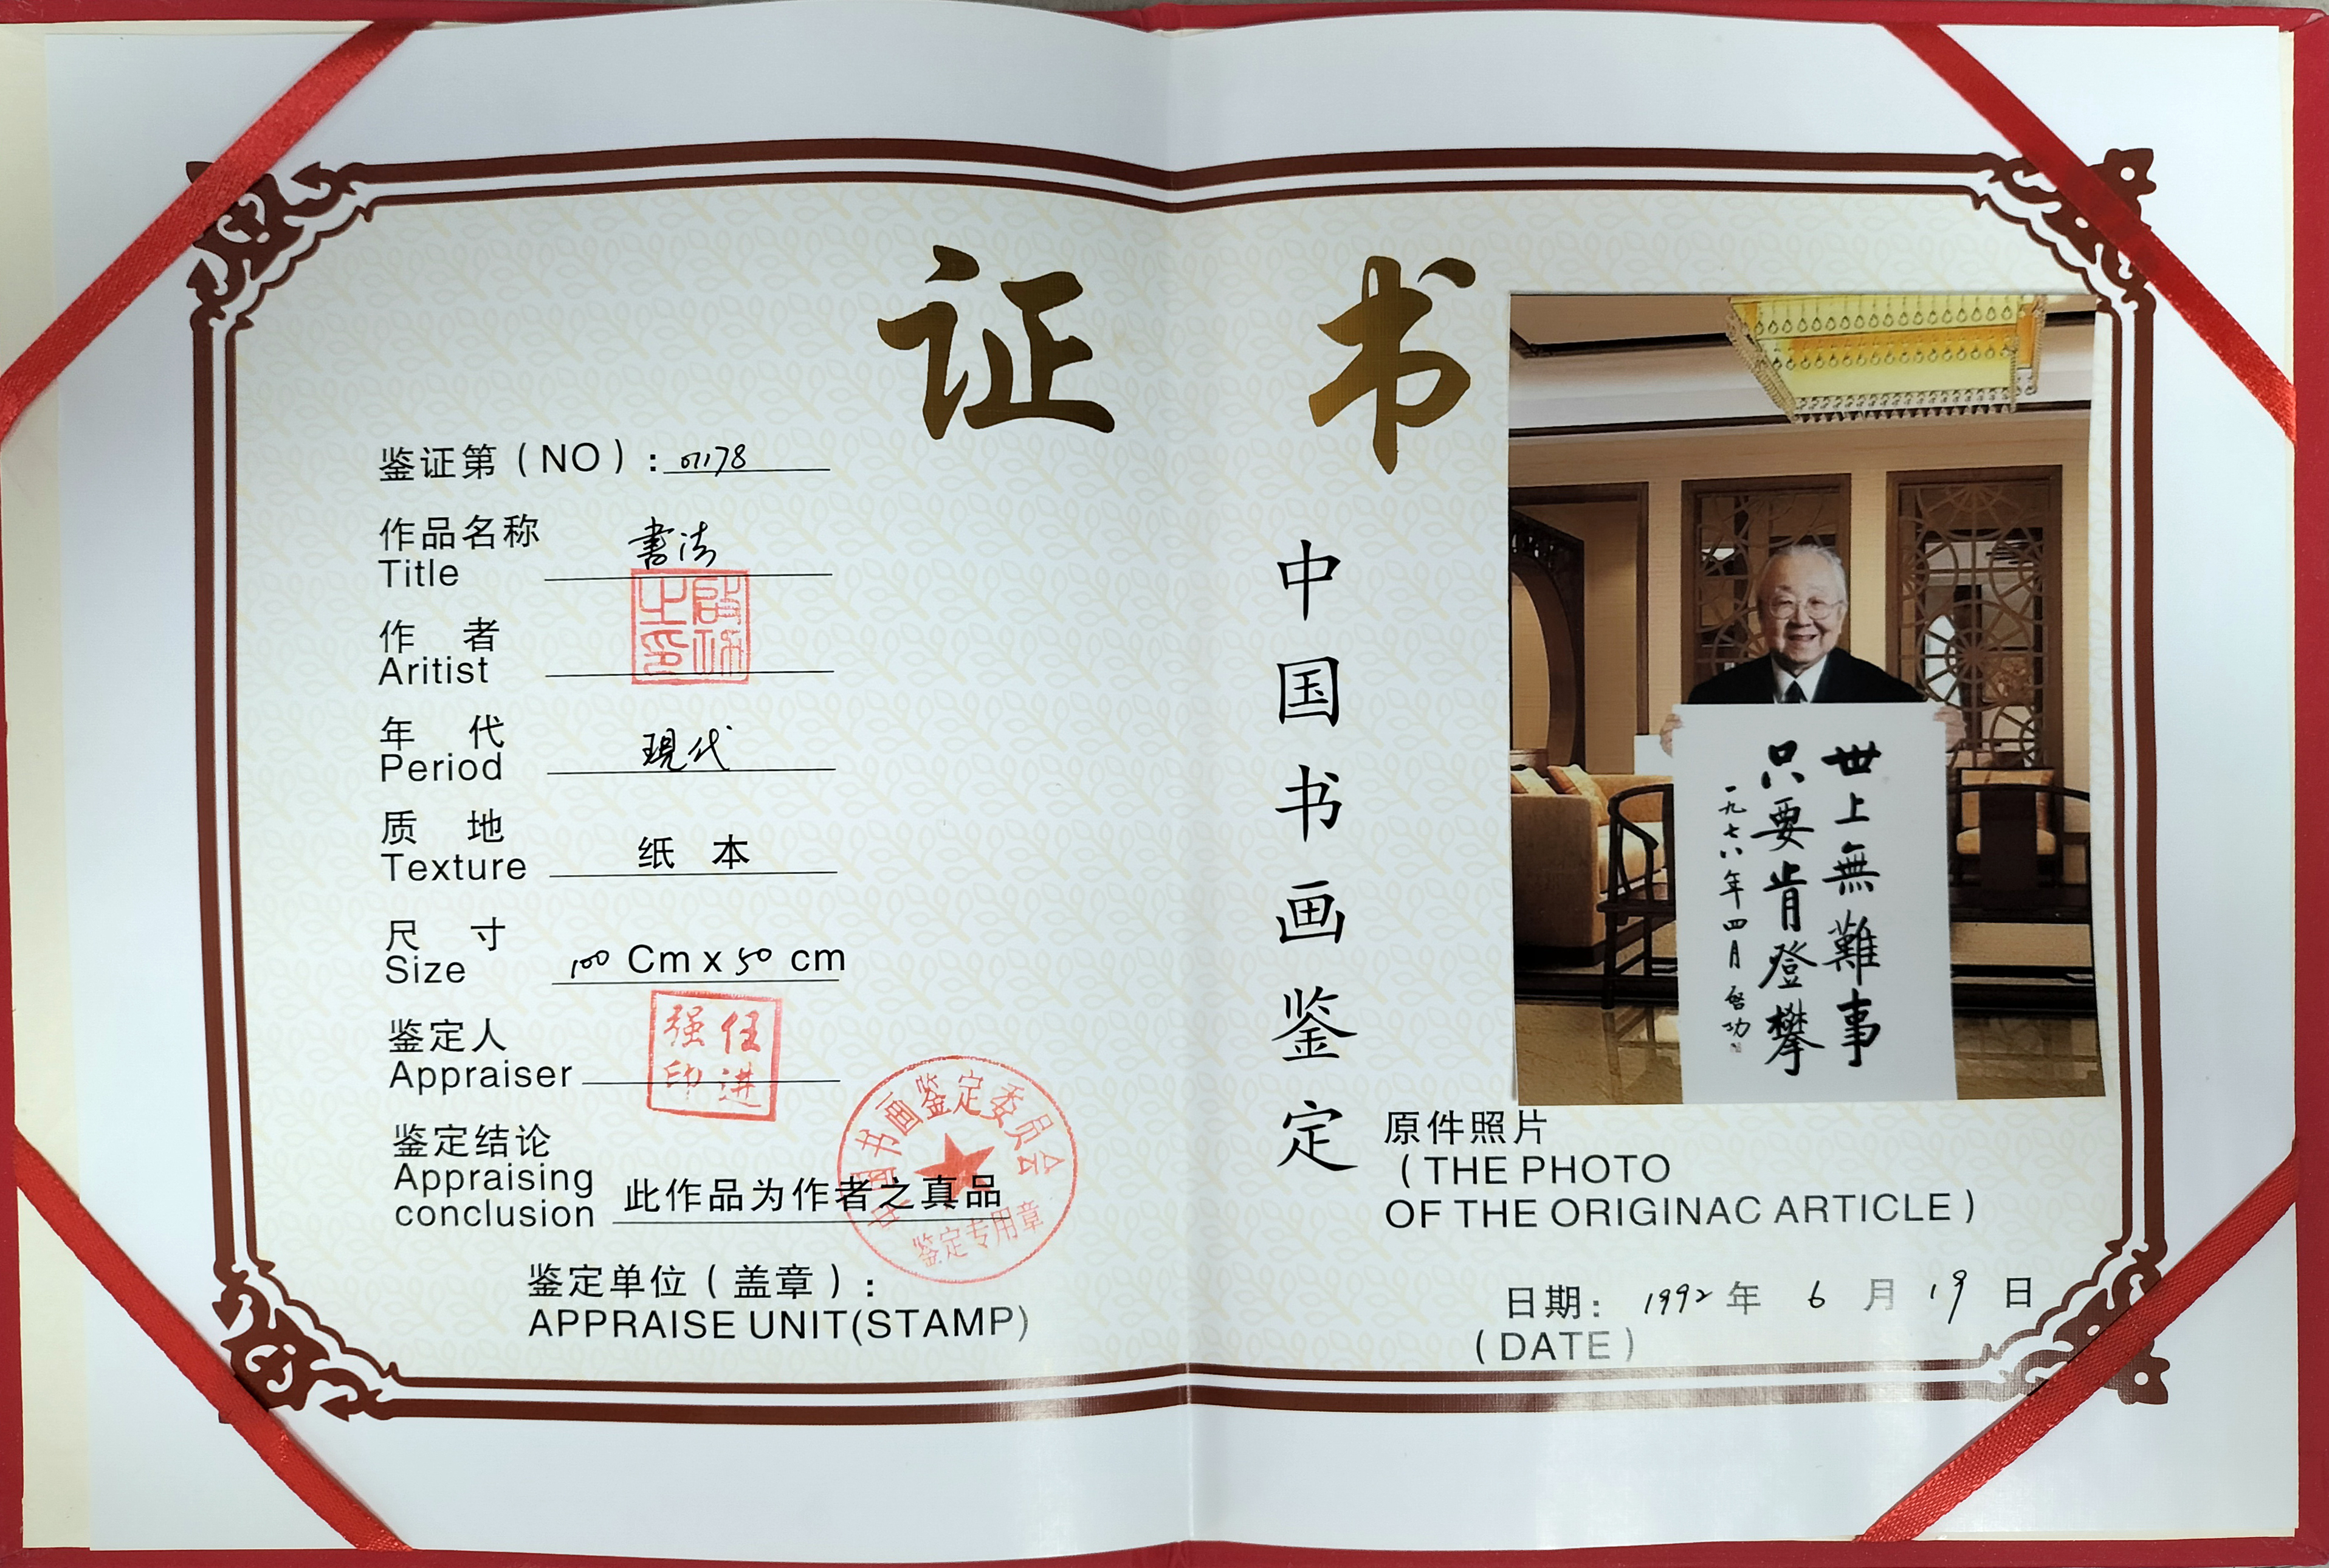 证 书
鉴证第（NO）：01178
作品名称 書法
Title
作 者
Aritist
启功之印
年 代 現代
Period
质 地 纸 本
Texture
尺 寸 100 Cm x 50 cm
Size
鉴定人
Appraiser
任进强印
鉴定结论
Appraising
conclusion 此作品为作者之真品
中国书画鉴定委员会
鉴定专用章
鉴定单位（盖章）：
APPRAISE UNIT(STAMP)
中国书画鉴定
世上無難事
只要肯登攀
一九七八年四月 啓功
原件照片
（THE PHOTO
OF THE ORIGINAC ARTICLE）
日期：1992 年 6 月 19 日
（DATE）